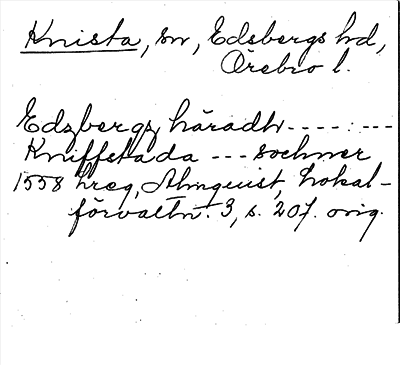 Knista, sn, Edsbergs hd,
Örebro l.
Edzbergz häradh ---- : ---
Kniffstada --- sochner
1558 hreg, Almquist, Lokal-
förvaltn. 3, s. 207. orig.